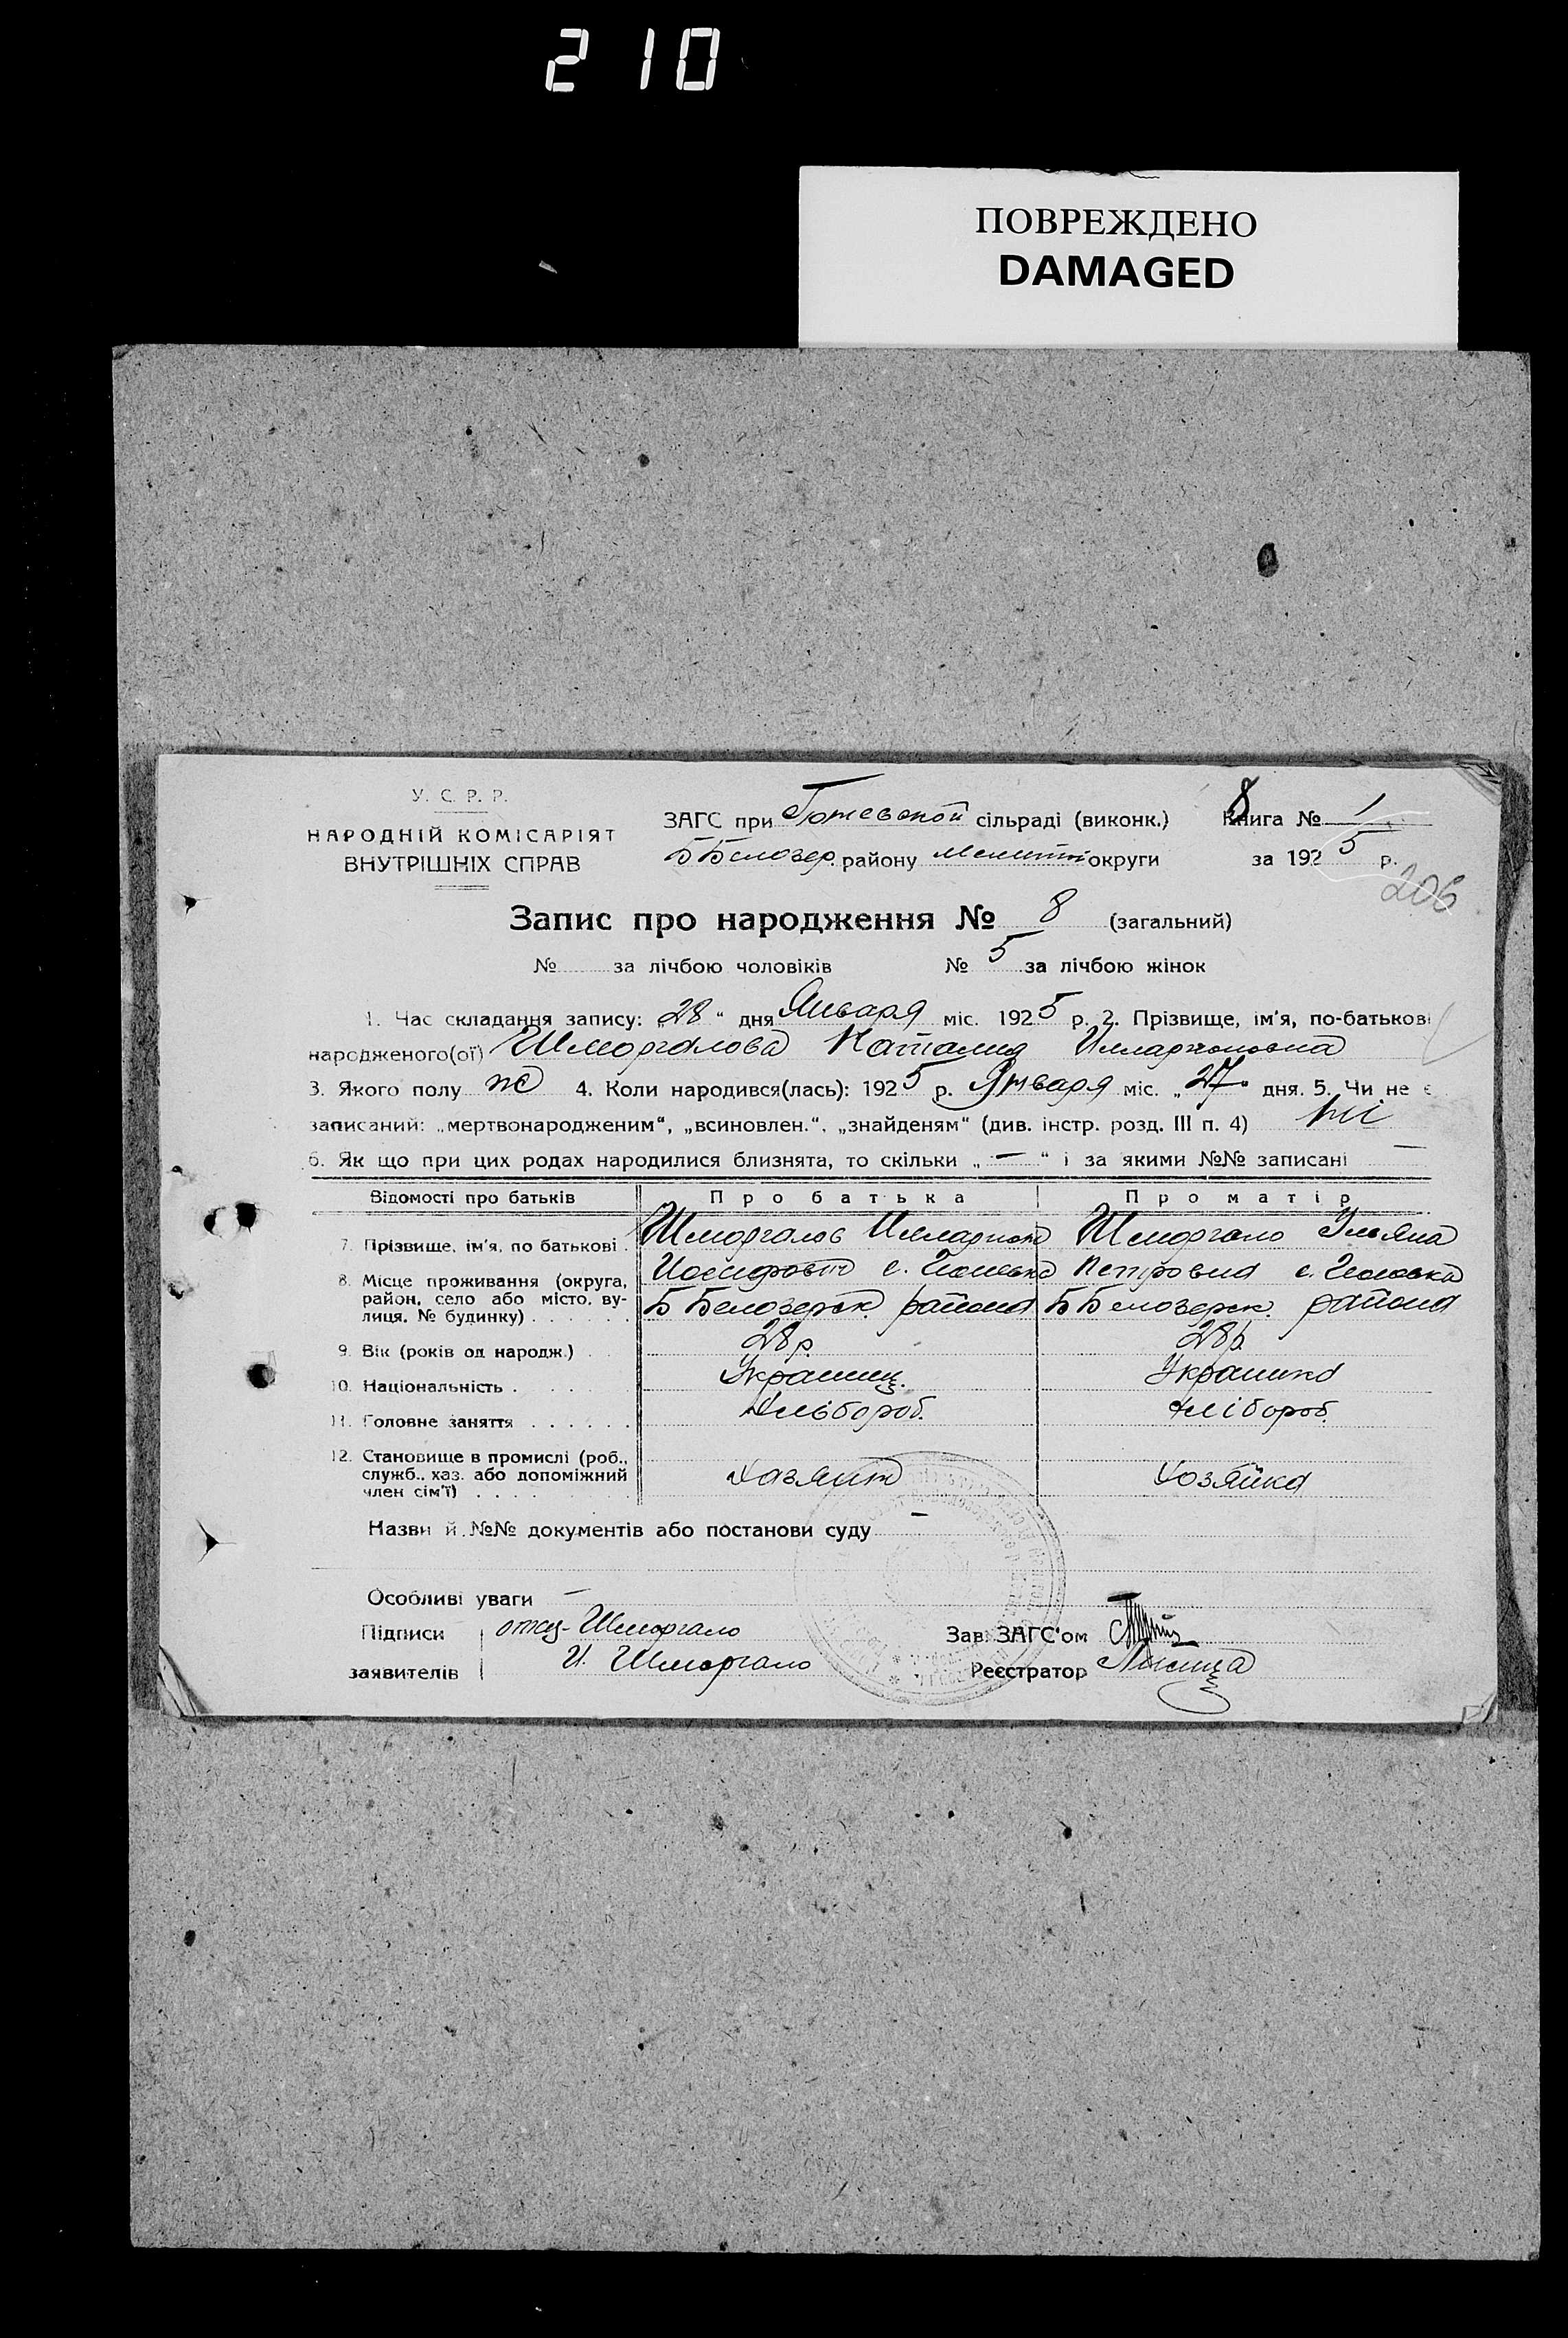 210
ПОВРЕЖДЕНО
DAMAGED
У. С. Р. Р.
НАРОДНІЙ КОМІСАРІЯТ
ВНУТРІШНІХ СПРАВ
ЗАГС при сільраді (виконк.) Книга № 1
Б Белозер. району Мелит округи за 1925 р.
206
Запис про народження № 8 (загальний)
№ за лічбою чоловіків № 5 за лічбою жінок
1. Час складання запису: „28“ дня Января міс. 1925 р. 2. Прізвище, ім'я, по-батькові
народженого(ої) Шморгалова Наталия Илларионовна
3. Якого полу ж 4. Коли народився(лась): 1925 р. Января міс. „27“ дня. 5. Чи не є
записаний: „мертвонародженим“, „всиновлен.“, „знайденям“ (див. інстр. розд. III п. 4) ні
6. Як що при цих родах народилися близнята, то скільки „—“ і за якими №№ записані —
Відомості про батьків Про батька Про матір
7. Прізвище, ім'я, по батькові . Шморгалов Илларион Шморгало Ульяна
8. Місце проживання (округа, район, село або місто, вулиця, № будинку) . . . . . . Иосифович с. Петровна с.
Б Белозерск. района Б Белозерск. района
9. Вік (років од народж.) . . 28 р. 28 р.
10. Національність . . . . Украинец. Украинка
11. Головне заняття . . . . . . Хлібороб. Хлібороб.
12. Становище в промислі (роб., служб., хаз. або допоміжний член сім'ї) . . . . Хозяин Хозяйка
Назви й №№ документів або постанови суду —
Особливі уваги —
Підписи отец Шморгало Зав. ЗАГС'ом
заявителів И. Шморгало Реєстратор Лисица